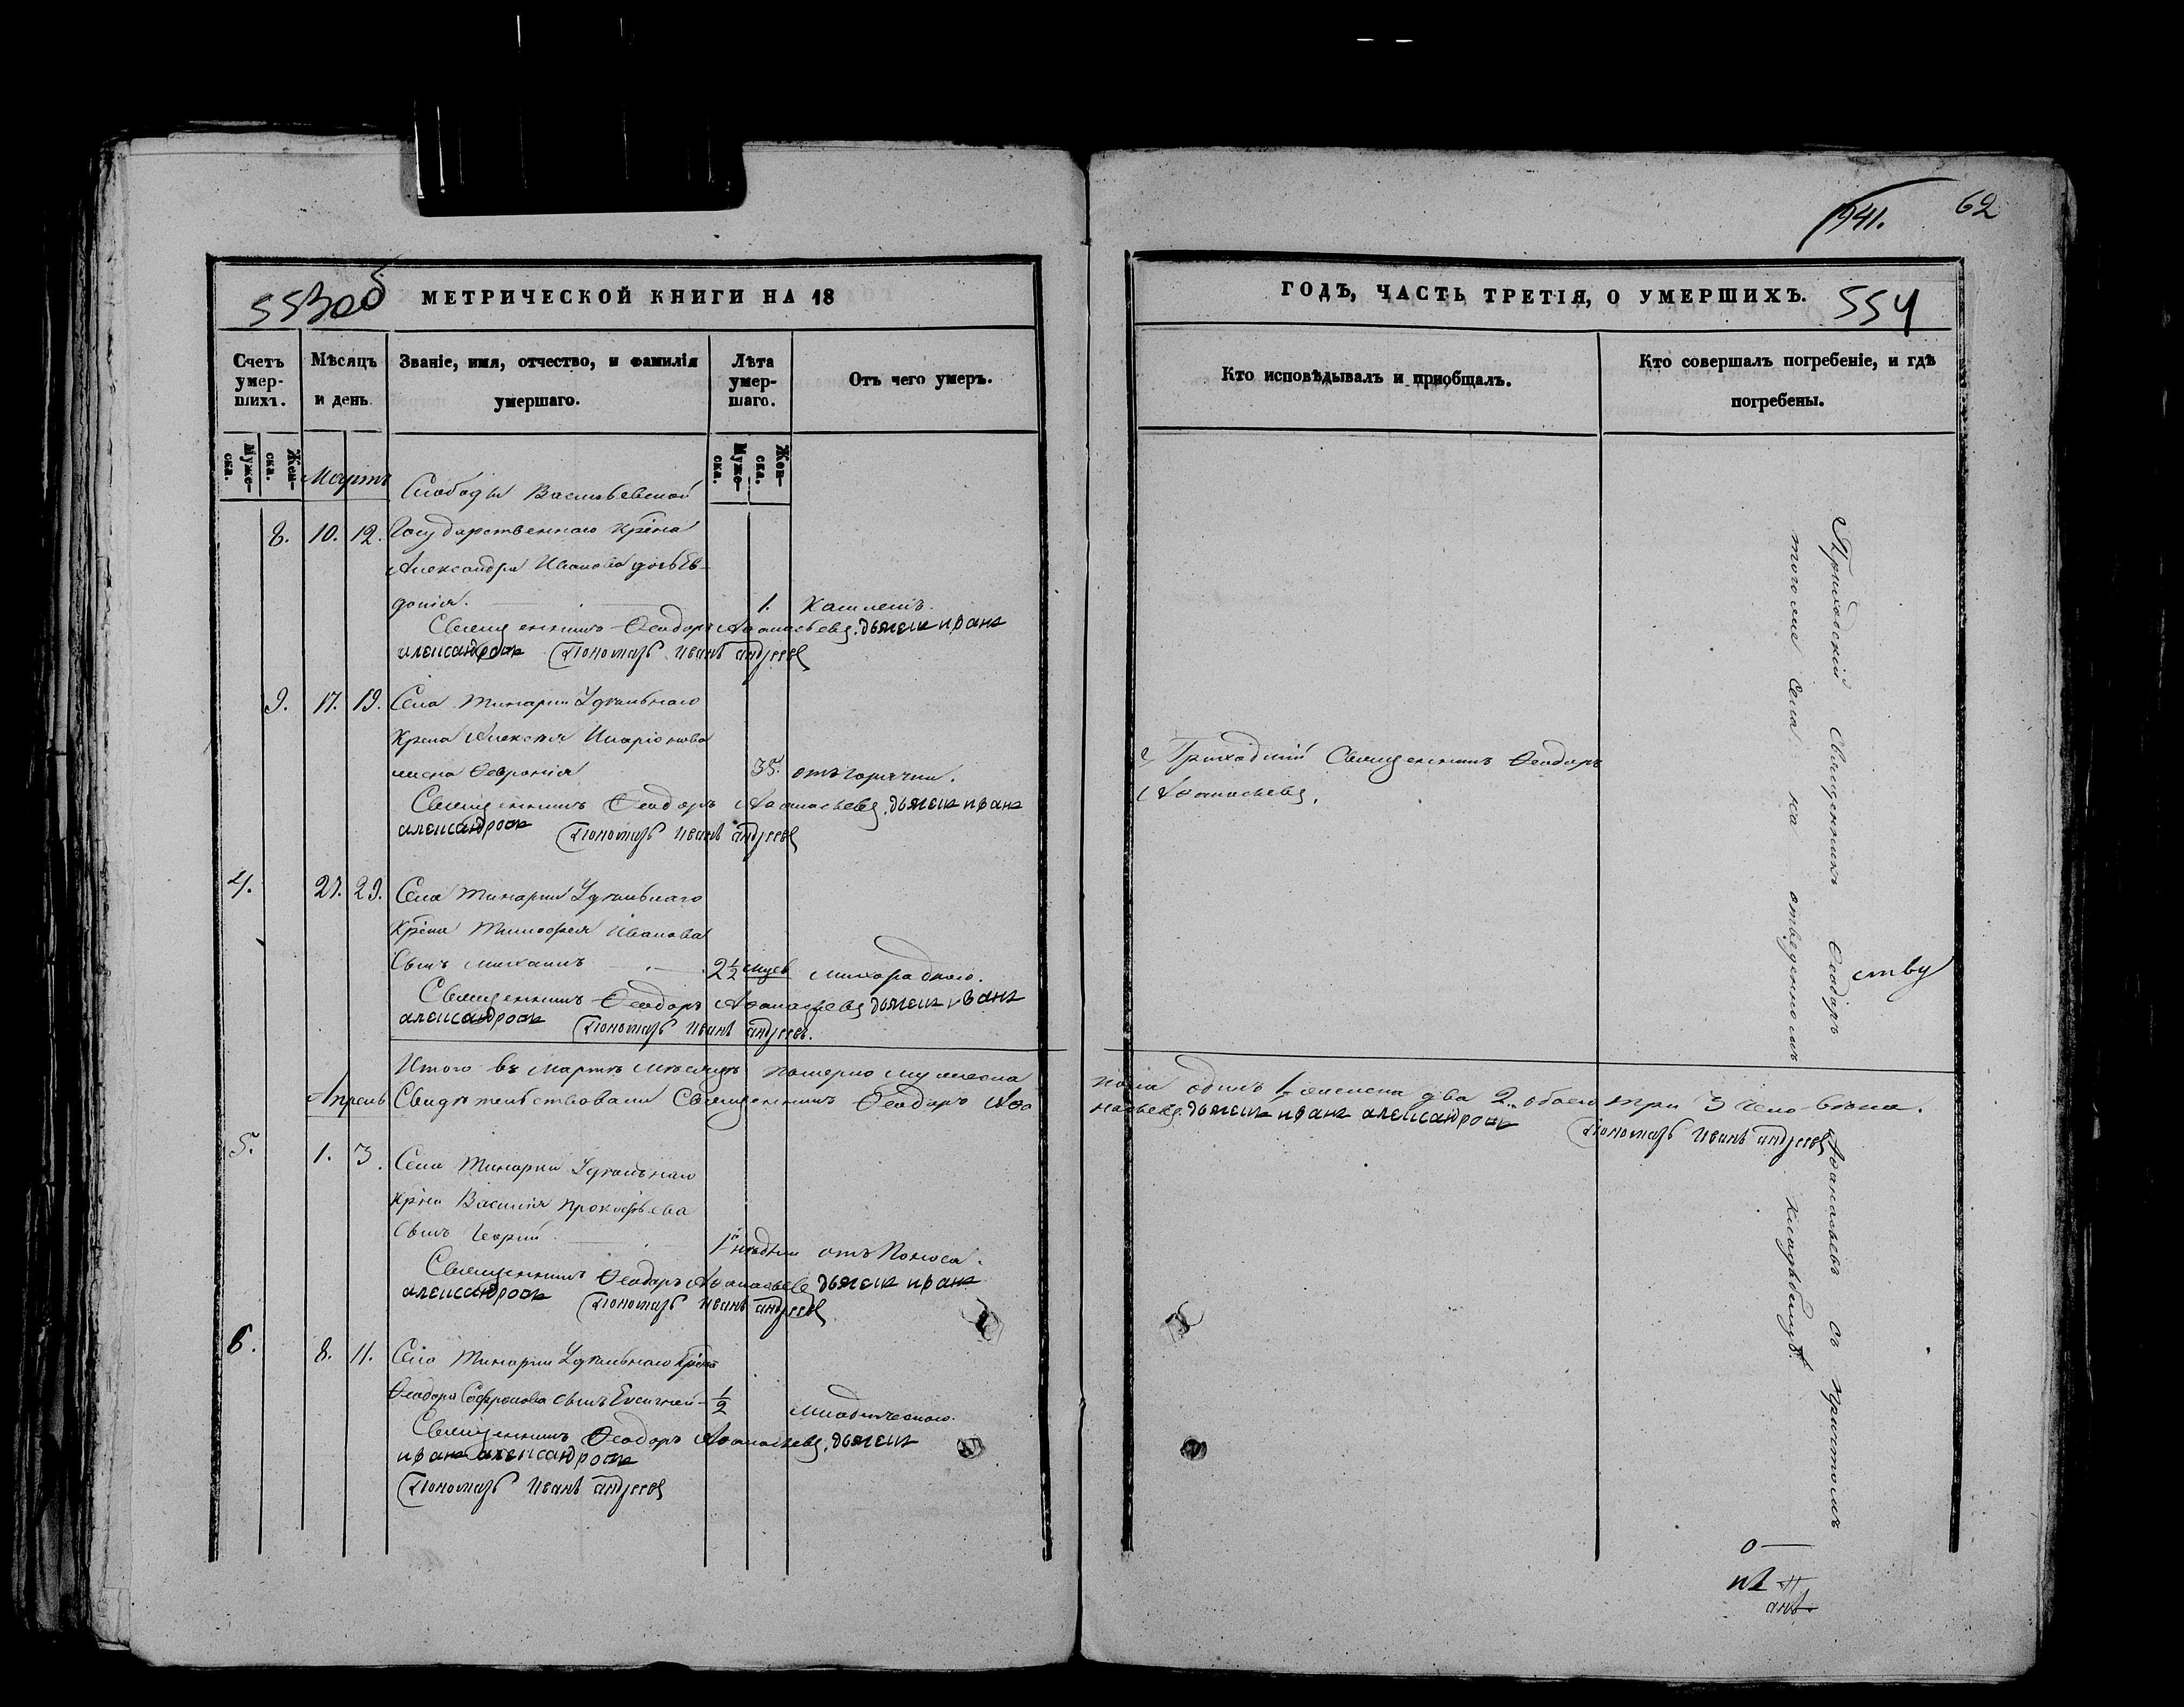 553об
МЕТРИЧЕСКОЙ КНИГИ НА 18
Счетъ умер-шихъ.
Мѣсяцъ и день.
Званіе, имя, отчество, и фамилія умершаго.
Лѣта умер-шаго.
Отъ чего умеръ.
Муже-ска.
Жен-ска.
Муже-ска.
Жен-ска.
Мартъ
Слободы Васильевской
8. 10. 12. Государственнаго крѣна
Александра Иванова дочь Ев-
докія. 1. Кашлемъ.
Священникъ Ѳеодоръ Аѳанасьевъ. дьячекъ иванъ
александровъ Пономарь Иванъ андреевъ
9. 17. 19. Села Тинарки Удѣльнаго
Крена Алексѣя Иларіонова
жена Ѳевронія 35. отъ горячки.
Священникъ Ѳеодоръ Аѳанасьевъ. дьячекъ иванъ
александровъ Пономарь Иванъ андреевъ
4. 27. 29. Села Тинарки Удѣльнаго
Крѣна Тимоѳея Иванова
Сынъ Михаилъ 2½ мцев
Священникъ Ѳеодоръ Аѳанасьевъ дьячекъ иванъ
александровъ Пономарь Иванъ андреевъ.
Итого въ Мартѣ мѣсяцѣ померло мужеска
Апрель Свидѣтельствовали Священникъ Ѳеодоръ Аѳа
5. 1. 3. Села Тинарки Удѣльнаго
Крѣна Василія Прокофьева
Сынъ Георгій 1 недѣли отъ Поноса.
Священникъ Ѳеодоръ Аѳанасьевъ дьячекъ иванъ
александровъ Пономарь Иванъ андреевъ
6. 8. 11. Села Тинарки Удѣльнаго Крѣна
Ѳеодора Софронова сынъ Евсигней ½ младенческою.
Священникъ Ѳеодоръ Аѳанасьевъ. дьячекъ
иванъ александровъ
Пономарь Иванъ андреевъ
1941. 62
ГОДЪ, ЧАСТЬ ТРЕТІЯ, О УМЕРШИХЪ. 554
Кто исповѣдывалъ и приобщалъ.
Кто совершалъ погребеніе, и гдѣ погребены.
Приходскій Священникъ Ѳеодоръ
Аѳанасьевъ.
пола одинъ 1. женска два 2. обоего три 3 человѣка.
насьевъ. дьячекъ иванъ александровъ Пономарь Иванъ андреевъ
Приходскій Священникъ Ѳеодоръ Аѳанасьевъ съ причтомъ
того же Села на отведенномъ кладбищѣ.
ству